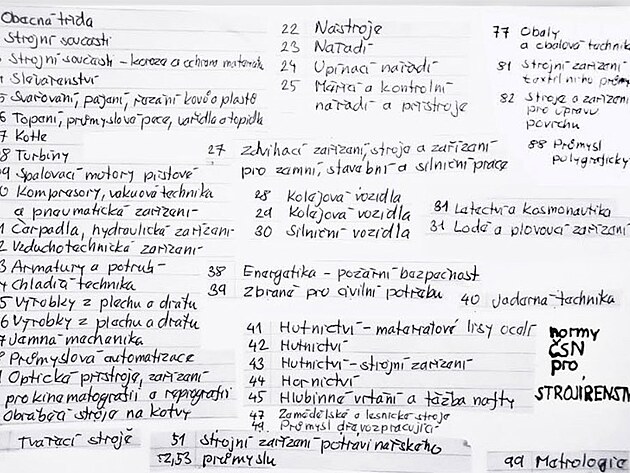 Obecná třída
Strojní součásti
Strojní součásti - koroze a ochrana materiálu
Slévárenství
5 Svařování, pájení, řezání kovů a plastů
6 Topení, průmyslové pece, vařidla a topidla
7 Kotle
08 Turbíny
09 Spalovací motory pístové
0 Kompresory, vakuová technika
a pneumatická zařízení
1 Čerpadla, hydraulická zařízení
2 Vzduchotechnická zařízení
3 Armatury a potrubí
4 Chladící technika
5 Výrobky z plechu a drátu
6 Výrobky z plechu a drátu
7 Jemná mechanika
8 Průmyslová automatizace
1 Optické přístroje, zařízení
pro kinematografii a reprografii
Obráběcí stroje na kovy
Tvářecí stroje
22 Nástroje
23 Nářadí
24 Upínací nářadí
25 Měřící a kontrolní
nářadí a přístroje
27 Zdvihací zařízení, stroje a zařízení
pro zemní, stavební a silniční práce
28 Kolejová vozidla
29 Kolejová vozidla
30 Silniční vozidla
31 Letectví a kosmonautika
31 Lodě a plovoucí zařízení
38 Energetika - požární bezpečnost
39 Zbraně pro civilní potřebu
40 Jaderná technika
41 Hutnictví - materiálové listy ocelí
42 Hutnictví
43 Hutnictví - strojní zařízení
44 Hornictví
45 Hlubinné vrtání a těžba nafty
47 Zemědělské a lesnické stroje
49. Průmysl dřevozpracující
51 Strojní zařízení potravinářského
52,53 průmyslu
77 Obaly
a obalová technika
81 Strojní zařízení
textilního průmy
82 Stroje a zařízení
pro úpravu
povrchu
88 Průmysl
polygrafický
normy
ČSN
pro
STROJÍRENSTV
99 Metrologie